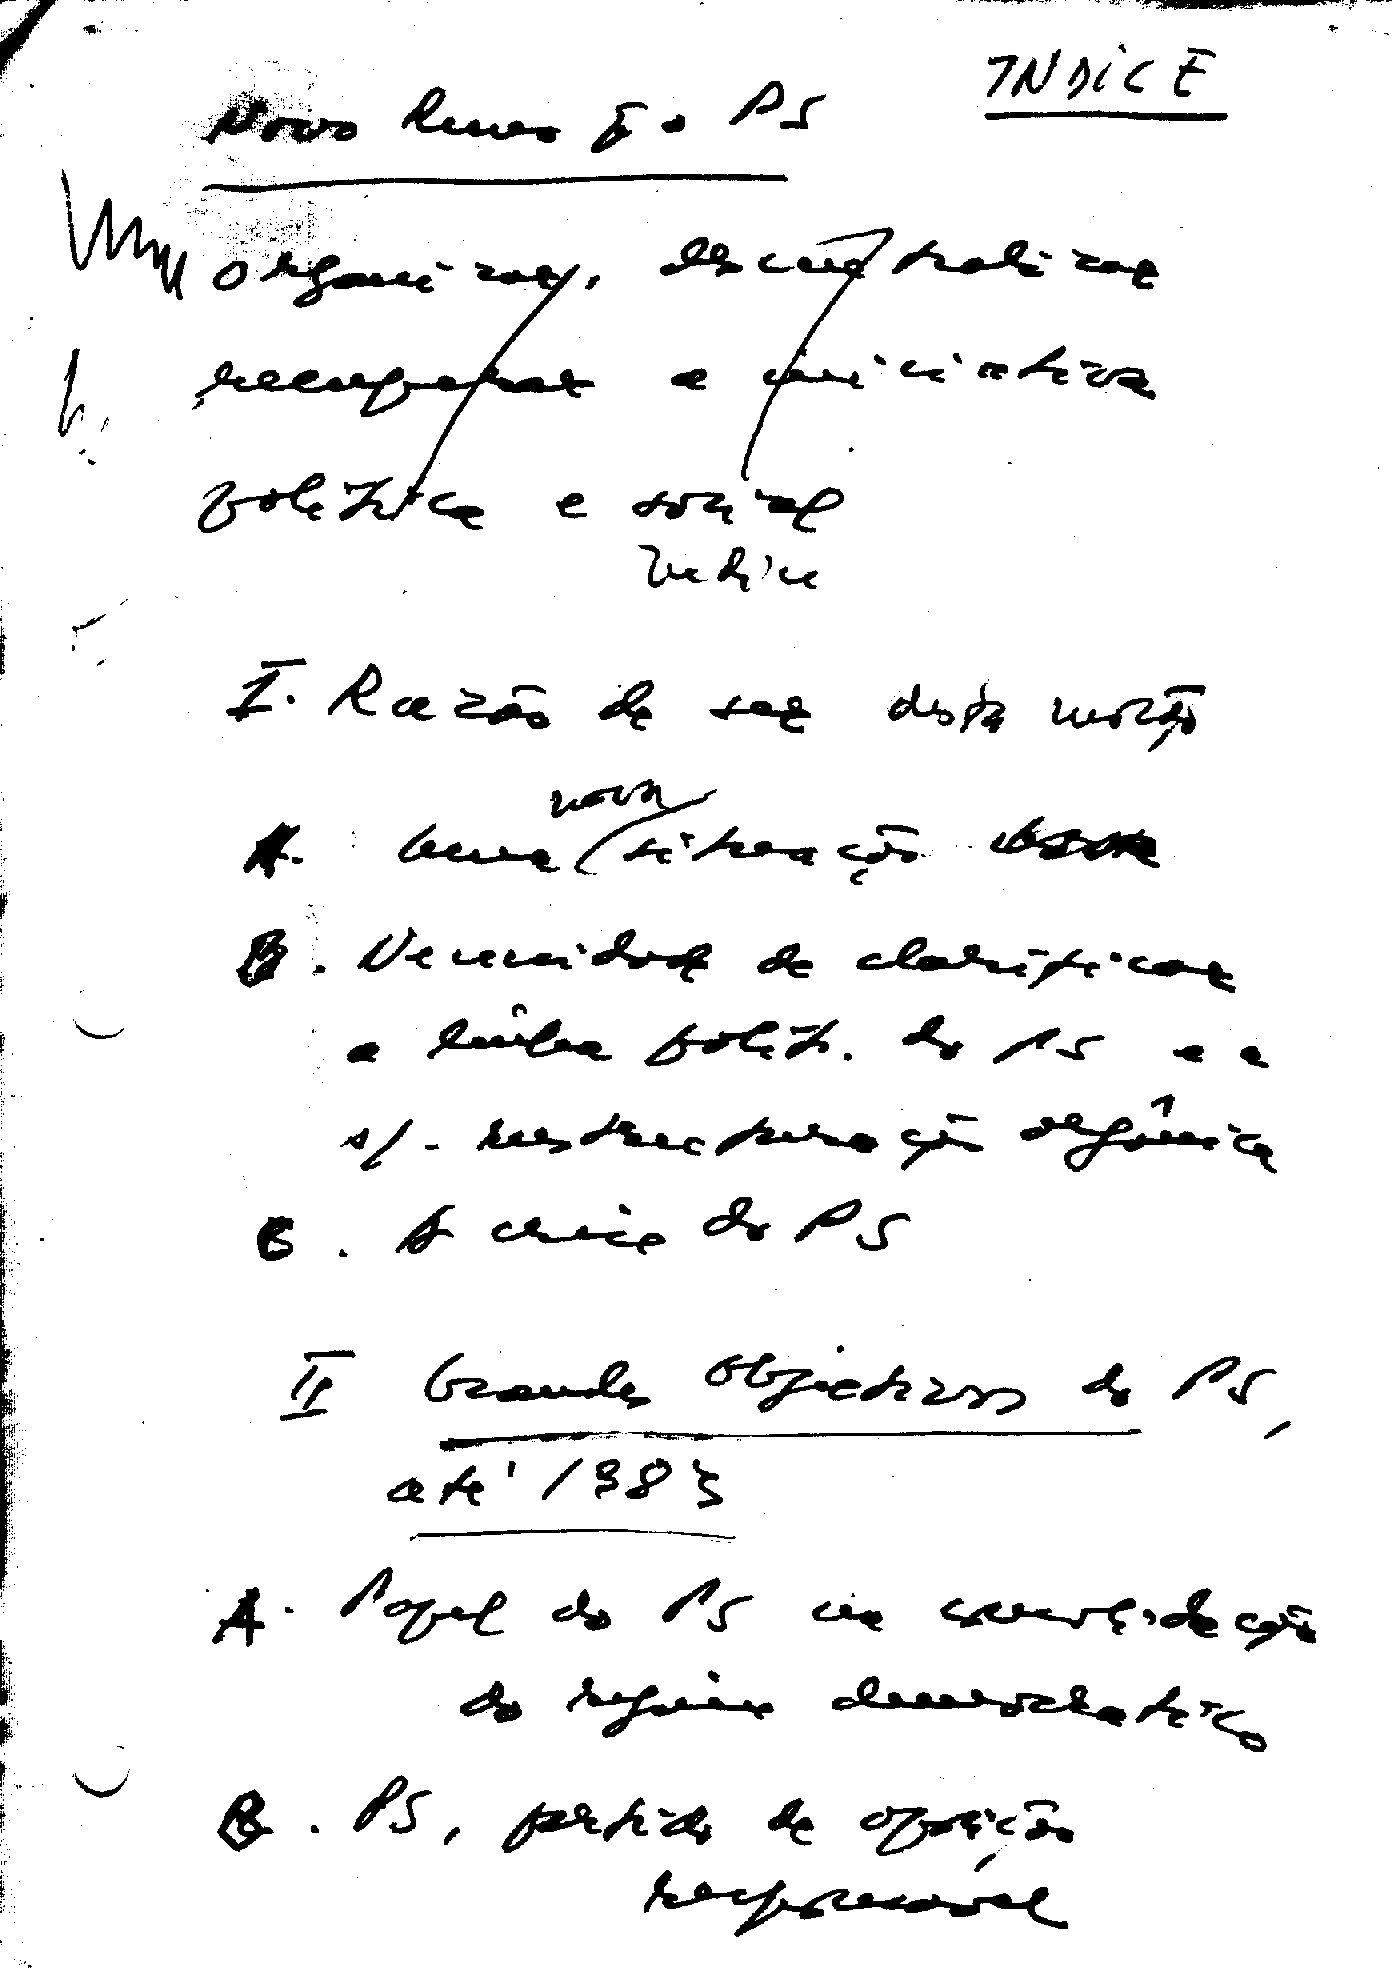 INDICE
Novo Rumo p. o PS
organizar, descentralizar
recuperar a iniciativa
política e social
Indice
I. Razão de ser desta moção
A. Uma nova situação
B. Necessidade de clarificar
a linha polít. do PS e a
s/. reestructuração orgânica
C. A crise do PS
II Grandes Objectivos do PS,
até 1983
A. Papel do PS na consolidação
do regime democratico
B. PS, partido de oposição
responsável